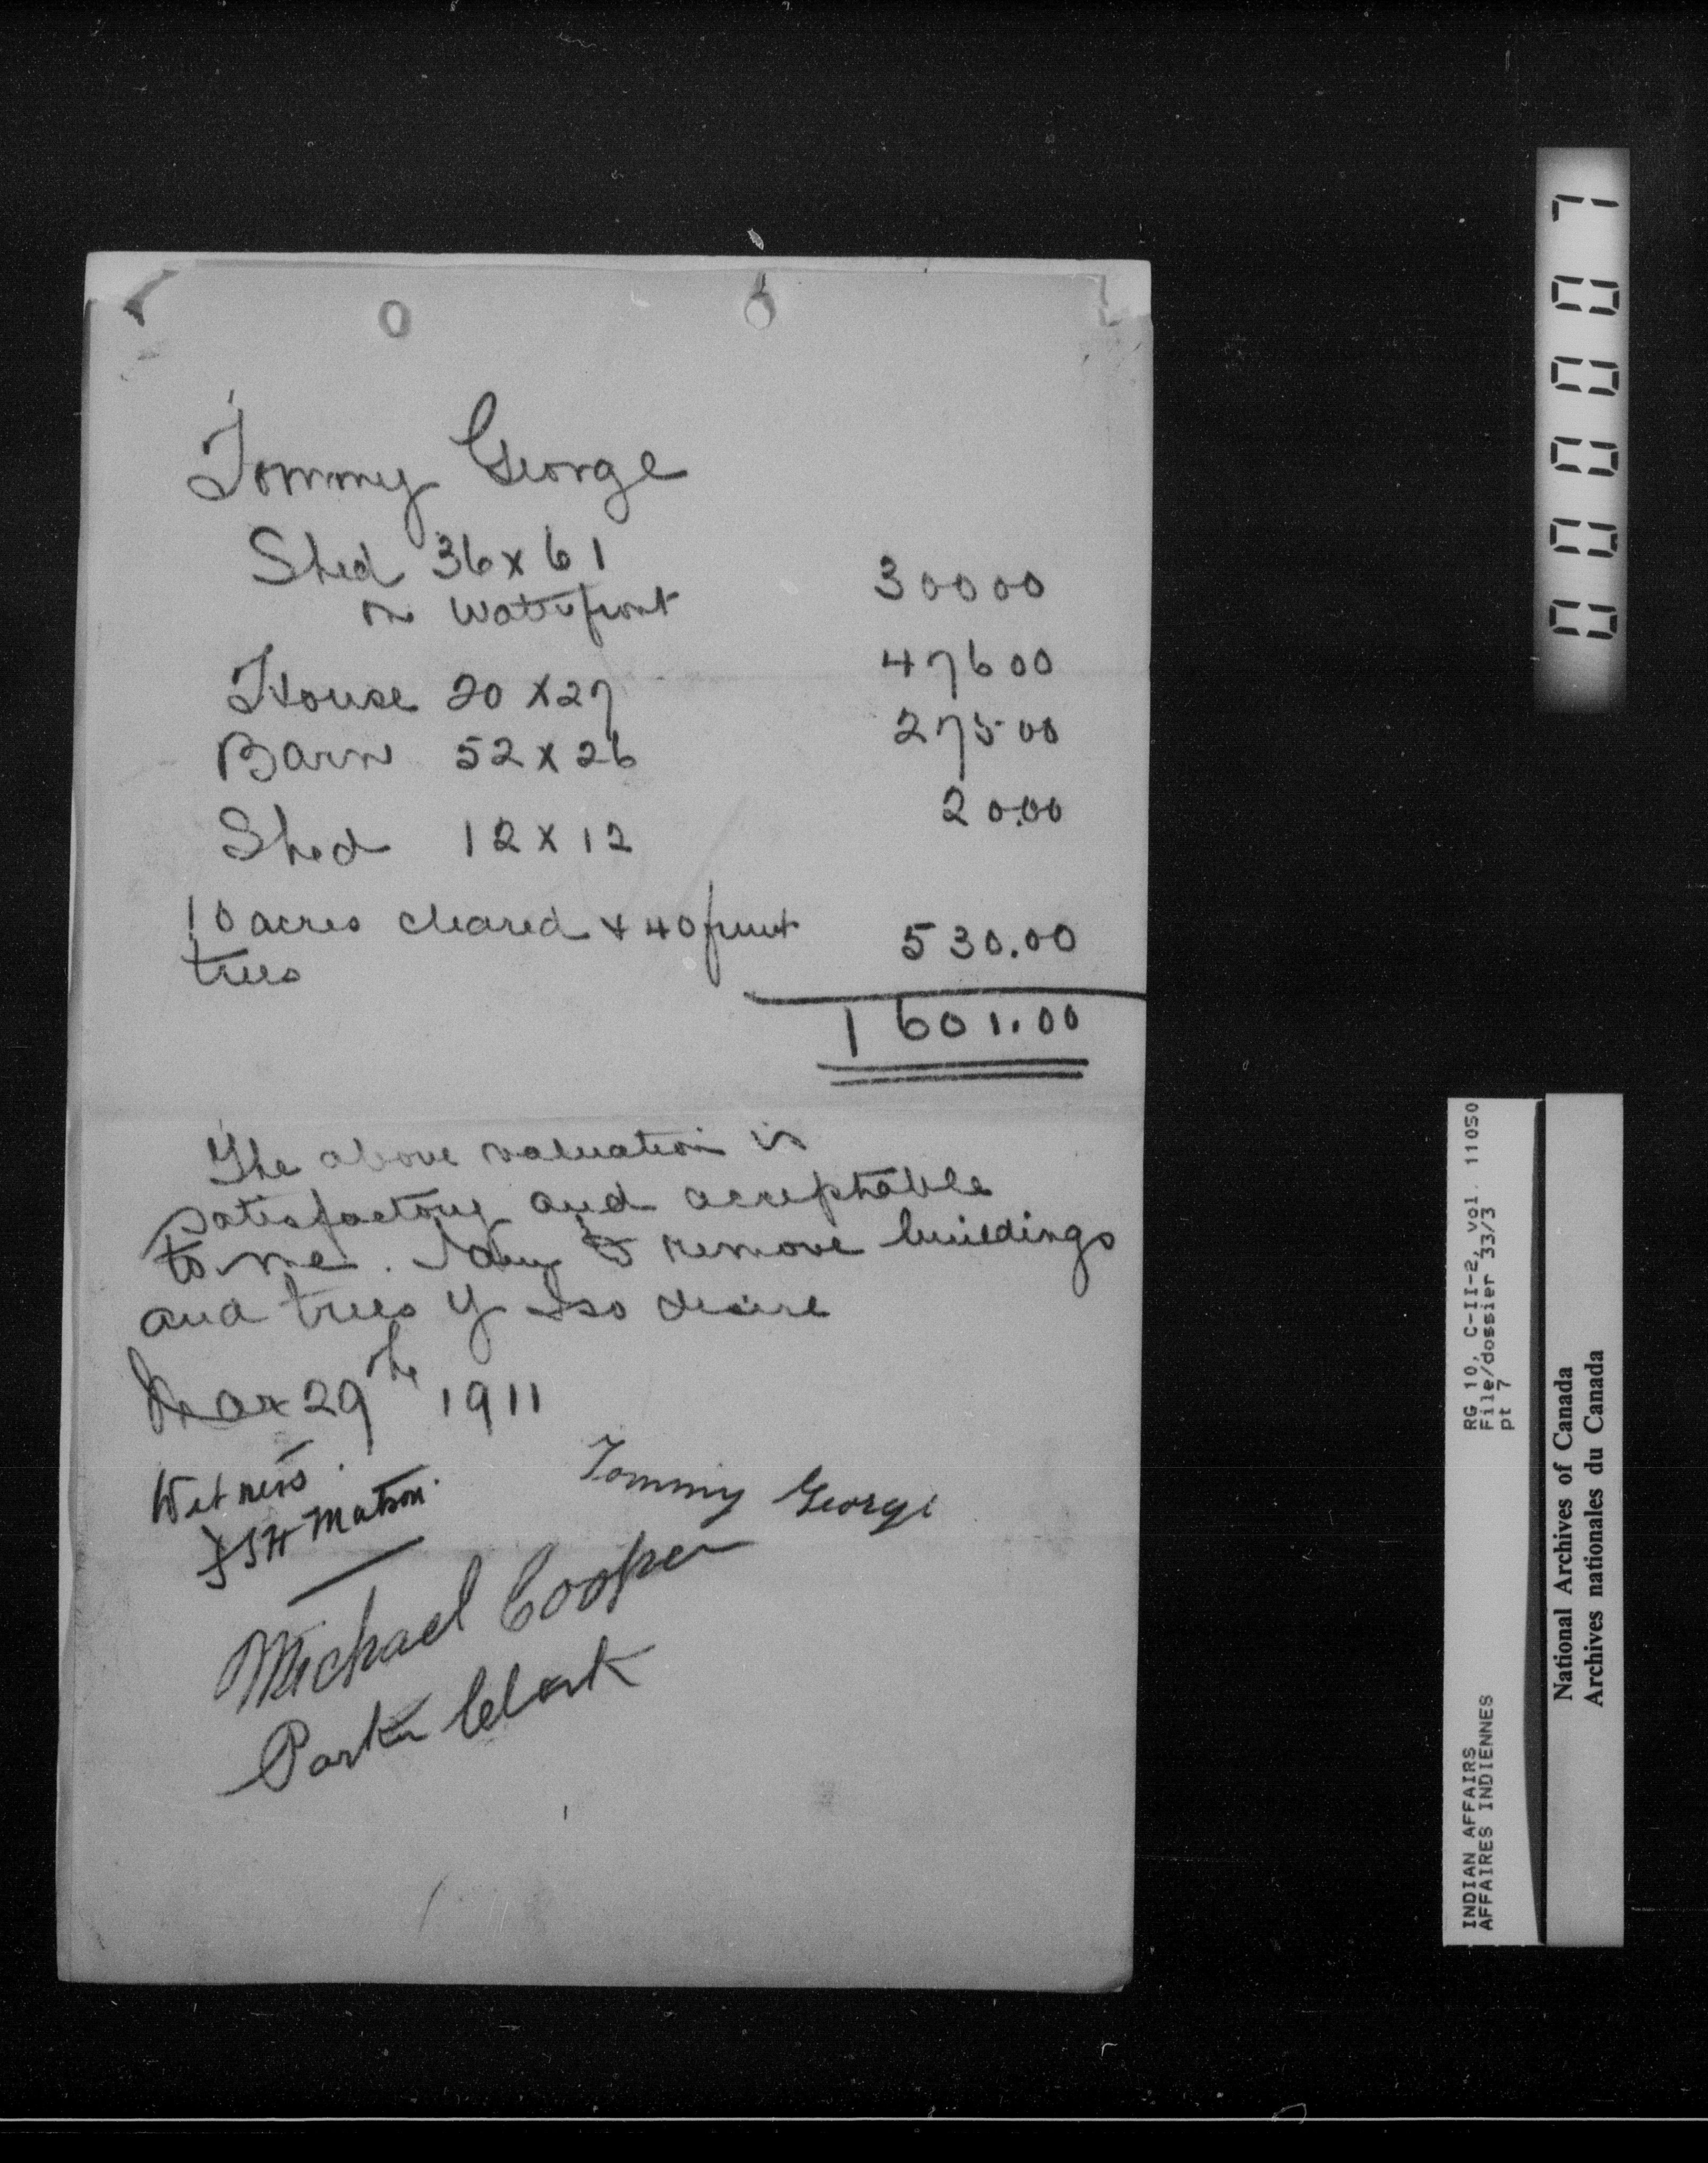 Tommy George
Shed 36 x 61
on Waterfront 300 00
House 20 x 27 476 00
Barn 52 x 26 275 00
Shed 12 x 12 20.00
10 acres cleared + 40 fruit
trees 530.00
1601.00
The above valuation is
satisfactory and acceptable
to me. I am to remove buildings
and trees if I so desire
Mar 29th 1911
Witness.
Tommy George
JSH Matson.
Michael Cooper
Parker Clark
000007
RG 10, C-II-2, vol. 11050
File/dossier 33/3
pt 7
INDIAN AFFAIRS
AFFAIRES INDIENNES
National Archives of Canada
Archives nationales du Canada